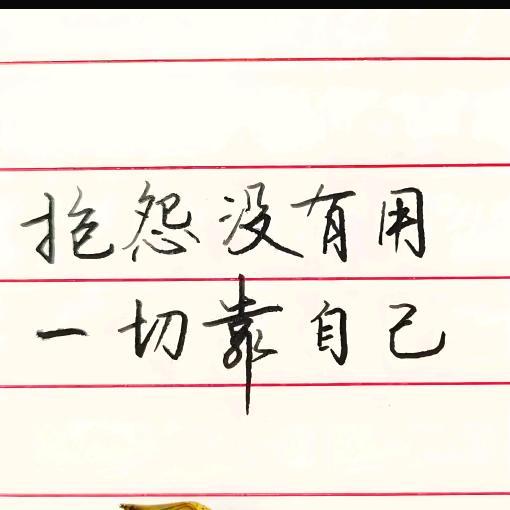 抱怨没有用
一切靠自己